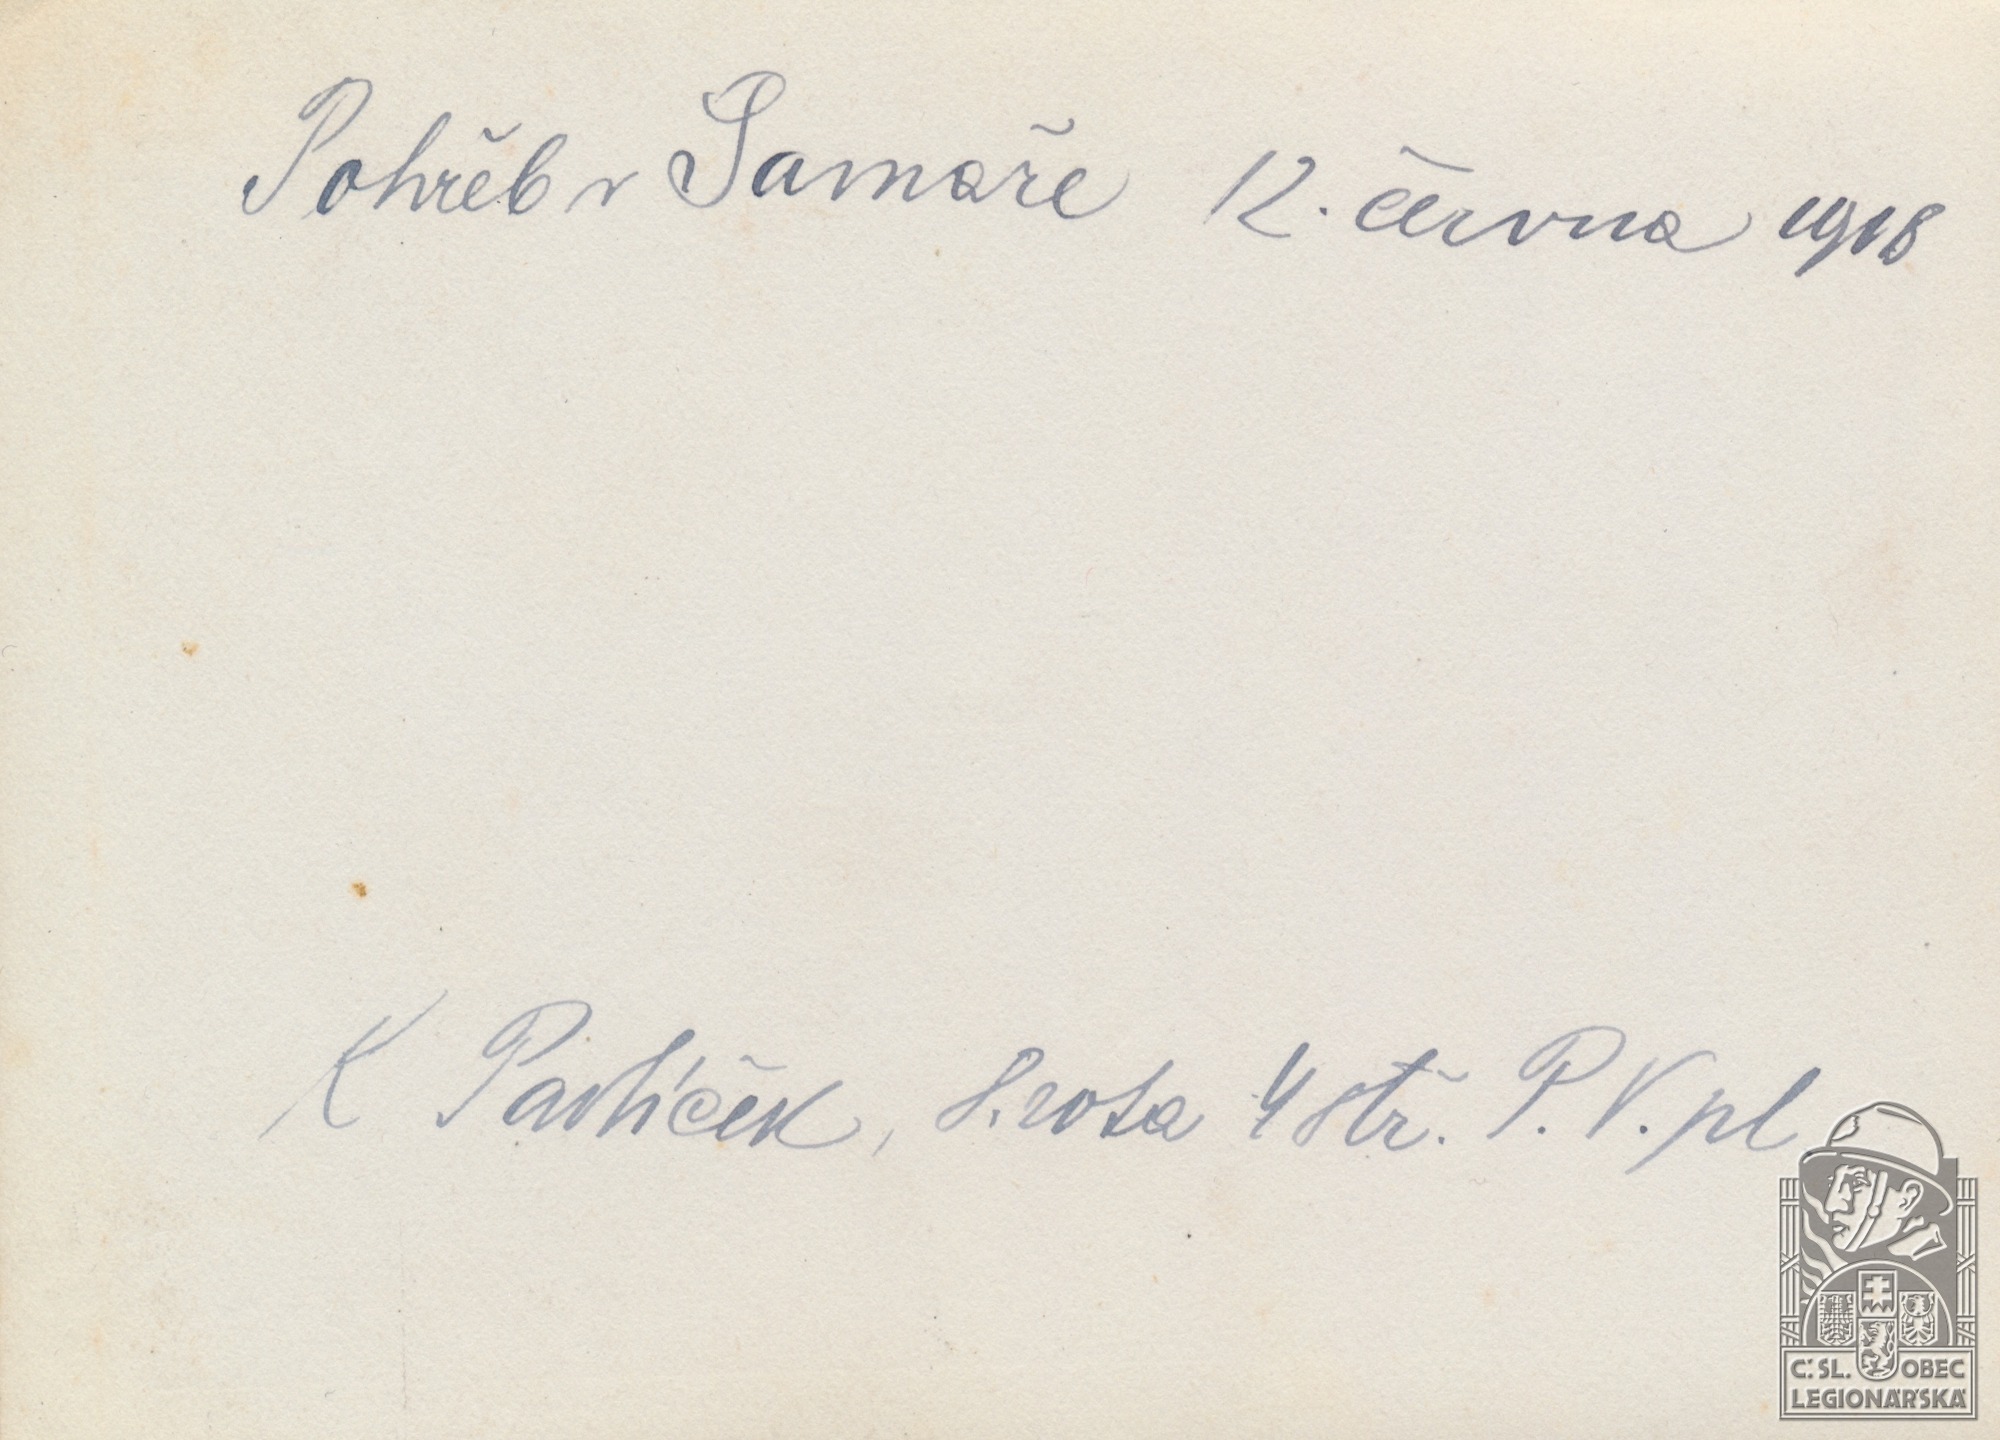 Pohřeb v Samaře 12. června 1918
K Pavlíček, 8. rota 4 stř. P. V. pl
Č. SL. OBEC
LEGIONÁŘSKÁ